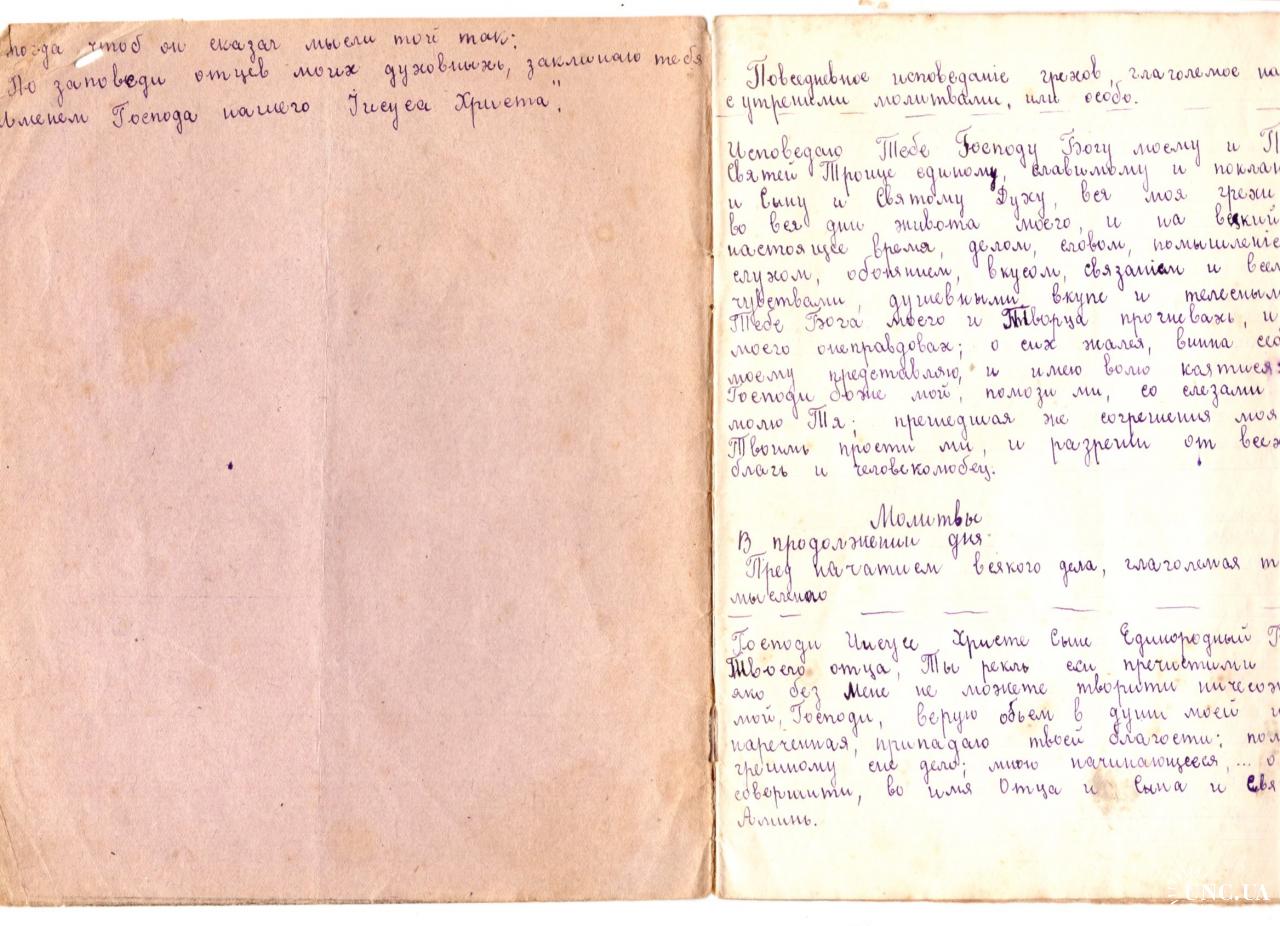 тогда чтоб он сказал мысли той так:
По заповеди отцев моих духовныхъ, заклинаю тебя
Именем Господа нашего Iисуса Христа".
Повседневное исповеданiе грехов, глаголемое на
с утренними молитвами, или особо.
Исповедаю Тебе Господу Богу моему и
Святей Троице единому, славимому и поклан
и Сыну и Святому Духу, вся моя грехи
во вся дни живота моего, и на всякий
настоящее время, делом, словом, помышленiе
слухом, обонянием, вкусом, связанiем и всем
чувствами, душевными вкупе и телесным
Тебе Бога моего и Творца прогневахъ, и
моего онеправдовах; о сих жалея, винна себ
моему представляю, и имею волю каятися:
Господи боже мой, помози ми, со слезами
молю Тя; прешедшая же согрешения моя
Твоимъ прости ми, и разреши от всех
благъ и человеколюбец.
Молитвы
В продолжении дня
Пред начатием всякого дела, глаголемая т
мысленно
Господи Иисусе Христе Сыне Единородный
Твоего отца, Ты реклъ еси пречистими
яко без Мене не можете творити ничесож
мой, Господи, верую обьем в души моей и
нареченная, припадаю твоей благости: пом
грешному сие дело; мною начинающееся, ... о
совершити, во имя Отца и Сына и Свя
Аминь.
UNC.UA